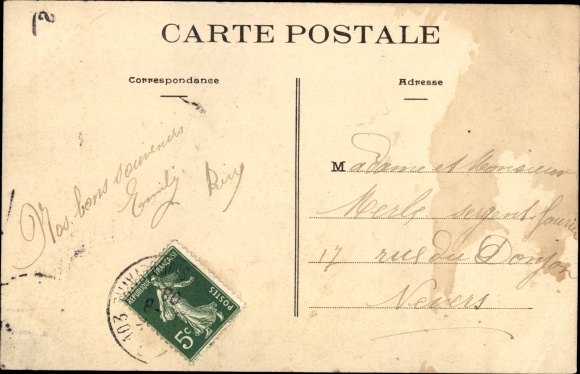 CARTE POSTALE
Correspondance
Adresse
Nos bons souvenirs
Emily
Madame et Monsieur
Merle sergent fourrier
17 rue du Donjon
Nevers
RÉPUBLIQUE FRANÇAISE
POSTES
5c
103